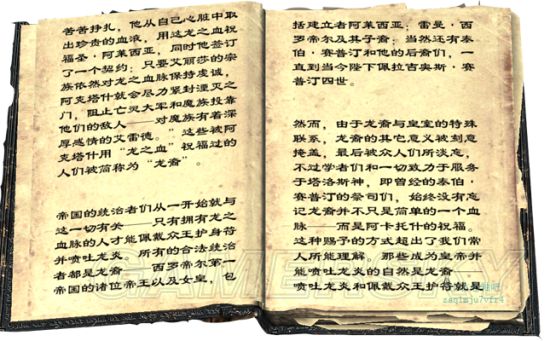 苦苦挣扎，他从自己心脏中取
出珍贵的血液，用这龙之血祝
福圣·阿莱西亚，同时他签订
了一个契约：只要艾丽莎的宗
族依然对龙之血脉保持虔诚，
阿克塔什就会尽力紧封湮灭之
门，阻止亡灵大军和魔族投靠
他们的敌人——对魔族有着深
厚感情的艾雷德。”这些被阿
克塔什用“龙之血”祝福过的
人们被简称为“龙裔”。
帝国的统治者们从一开始就与
这一切有关——只有拥有龙之
血脉的人才能佩戴众王护身符
并喷吐龙炎。所有的合法统治
者都是龙裔——西罗帝尔第一
帝国的诸位帝王以及女皇，包
括建立者阿莱西亚；雷曼·西
罗帝尔及其子裔；当然还有泰
伯·赛普汀和他的后裔们，一
直到当今陛下佩拉吉奥斯·赛
普汀四世。
然而，由于龙裔与皇室的特殊
联系，龙裔的其它意义被刻意
掩盖，最后被众人们所淡忘，
不过学者们和一切致力于服务
于塔洛斯神，即曾经的泰伯·
赛普汀的祭司们，始终没有忘
记龙裔并不只是简单的一个血
脉——而是阿卡托什的祝福。
这种赐予的方式超出了我们常
人所能理解，那些成为皇帝并
能喷吐龙炎的自然是龙裔——
喷吐龙炎和佩戴众王护符就是
GAMERSKY
zaq1mju7vfr4